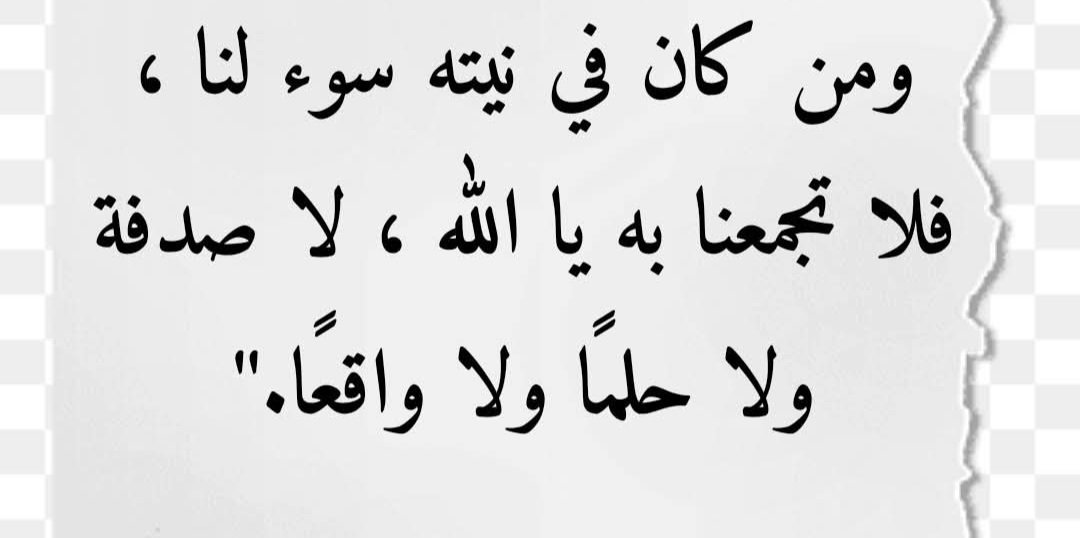 ومن كان في نيته سوء لنا ،
فلا تجمعنا به يا الله ، لا صدفة
ولا حلمًا ولا واقعًا."